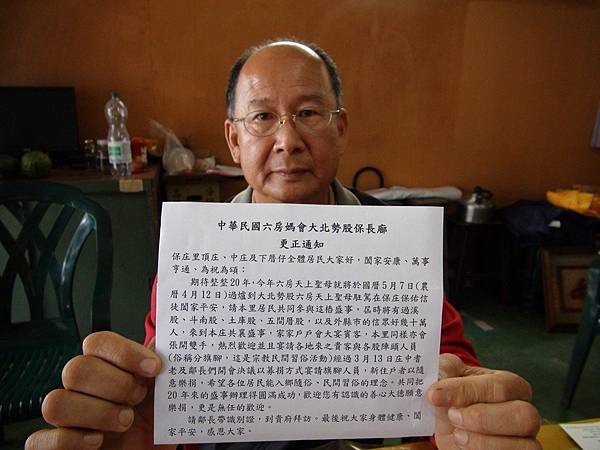 中華民國六房媽會大北勢股保長廍
更正通知
保庄里頂庄、中庄及下厝仔全體居民大家好，闔家安康、萬事
亨通、為祝為頌：
期待整整20年，今年六房天上聖母就將於國曆5月7日(農
曆4月12日)過爐到大北勢股六房天上聖母駐駕在保庄保佑信
徒闔家平安，請本里居民共同參與這樁盛事，屆時將有過溪
股、斗南股、土庫股、五間厝股，以及外縣市的信眾好幾十萬
人，來到本庄共襄盛事，家家戶戶會大宴賓客，本里同樣亦會
張開雙手，熱烈歡迎並且宴請各地來之貴客與各股陣頭人員
(俗稱分旗腳，這是宗教民間習俗活動)經過3月13日庄中耆
老及鄰長們開會決議以募捐方式宴請旗腳人員，新住戶者以隨
意樂捐，希望各位居民能入鄉隨俗、民間習俗的理念。共同把
20年來的盛事辦理得圓滿成功，歡迎您有認識的善心大德願意
樂捐，更是無任的歡迎。
請鄰長帶識別證，到貴府拜訪。最後祝大家身體健康、闔
家平安，感恩大家。